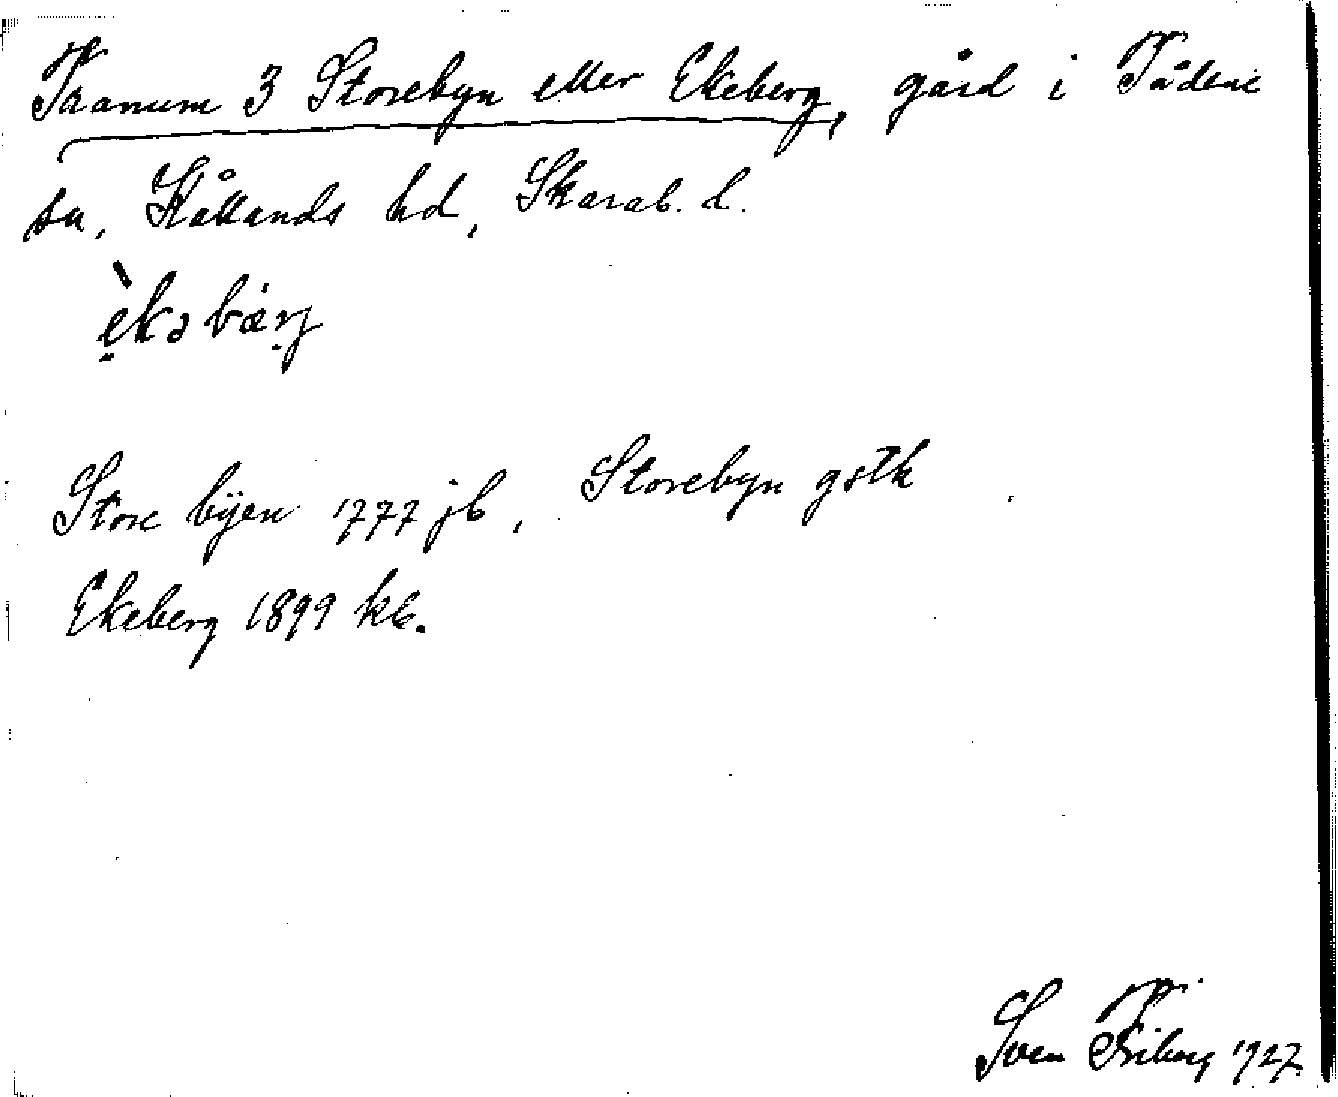 Tranum 3 Storebyn eller Ekeberg, gård i Tådene
sn, Kållands hd, Skarab. l.
èkəbærj
Store byen 1777 jb, Storebyn gstk
Ekeberg 1899 kb.
Sven Friberg 1927